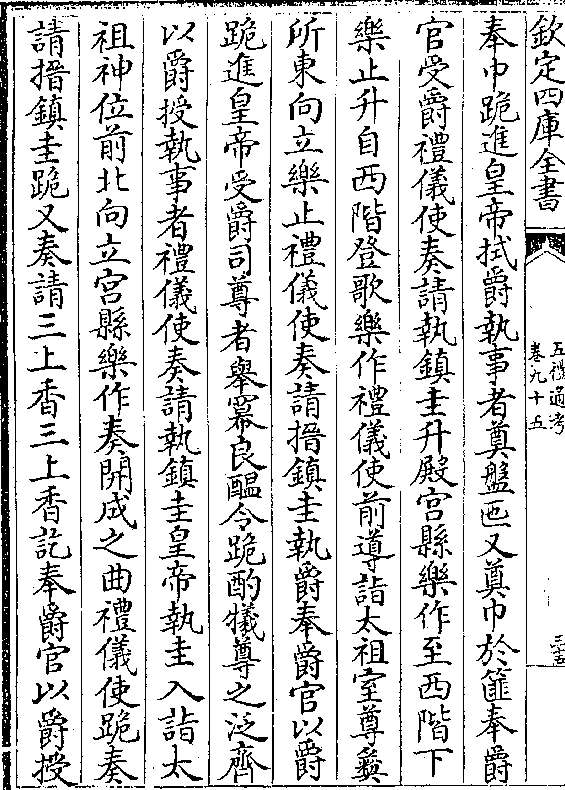 欽定四庫全書
五禮通考
卷九十五
三五
奉巾跪進皇帝拭爵執事者奠盤匜又奠巾於篚奉爵
官受爵禮儀使奏請執鎮圭升殿宫縣樂作至西階下
樂止升自西階登歌樂作禮儀使前導詣太祖室尊彝
所東向立樂止禮儀使奏請搢鎮圭執爵奉爵官以爵
跪進皇帝受爵司尊者舉羃良醖令跪酌犧尊之泛齊
以爵授執事者禮儀使奏請執鎮圭皇帝執圭入詣太
祖神位前北向立宫縣樂作奏開成之曲禮儀使跪奏
請搢鎮圭跪又奏請三上香三上香訖奉爵官以爵授